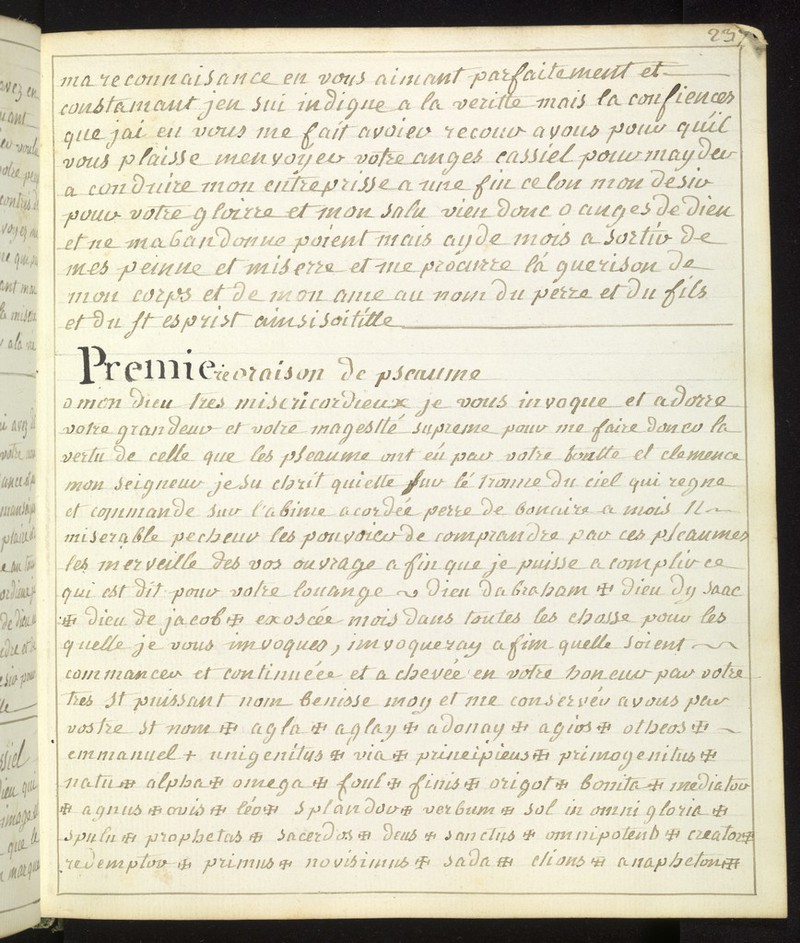 237
ma reconnaisance en vous aimant parfaitement et
constamant jen sui indigne a la veritte mais la confiences
que jai en vous me fait avoier recour a vous pour quil
vous plaisse menvoyer votre anges cassiel pour mayder
a conduire mon entreprisse a une fin celon mon desir
pour votre gloirre et mon salu vien donc o anges de dieu
et ne mabandonne poient mais ayde mois a sortir de
mes peinne et miserre et me procurre la guerison de
mon corps et de mon ame au nom du perre et du fils
et du st esprist ainsi soitille
Premierre oraison de pseaume
o mon dieu tres misericordieux je vous invoque et adorre
votre grandeur et votre magestté supreme pour me faire doner la
vertu de celle que les pseaume ont eü par votre bontte et clemence
mon seigneur jesu chrit quiette sur lé tronne du ciel qui regne
et commande sur l'abime acordée perre de bonaire a mois 11
miserable pecheur les pouvoier de comprandre par ces pseaumes
les merveille des vos ouvrage a fin que je puisse acomplir ce
qui est dit pour votre louange dieu dabraham ✠ dieu dysaac
✠ dieu de jacob ✠ exoscée mois dans toutes les chosse pour les
quelle je vous invoques, invoqueray afim quelle soient
commancer et continuéee et achevée en votre honeur par votre
tres st puissant nom benisse moy et me conservér a vous par
vostre st nom ✠ agla ✠ aglay ✠ adonay ✠ agios ✠ otheos ✠
emmanuel + unigenitus ✠ via ✠ principieus ✠ primogenitus ✠
natu ✠ alpha ✠ omega ✠ foul ✠ finis ✠ origot ✠ bonita ✠ mediator
✠ agnus ✠ ovis ✠ léo ✠ splandor ✠ verbum ✠ sol in omni gloria ✠
spulu ✠ prophetas ✠ sacerdos ✠ deus ✠ sanctus ✠ omnipotens ✠ creator ✠
redemptor ✠ primus ✠ novisimus ✠ sada ✠ elions ✠ anapheton ✠